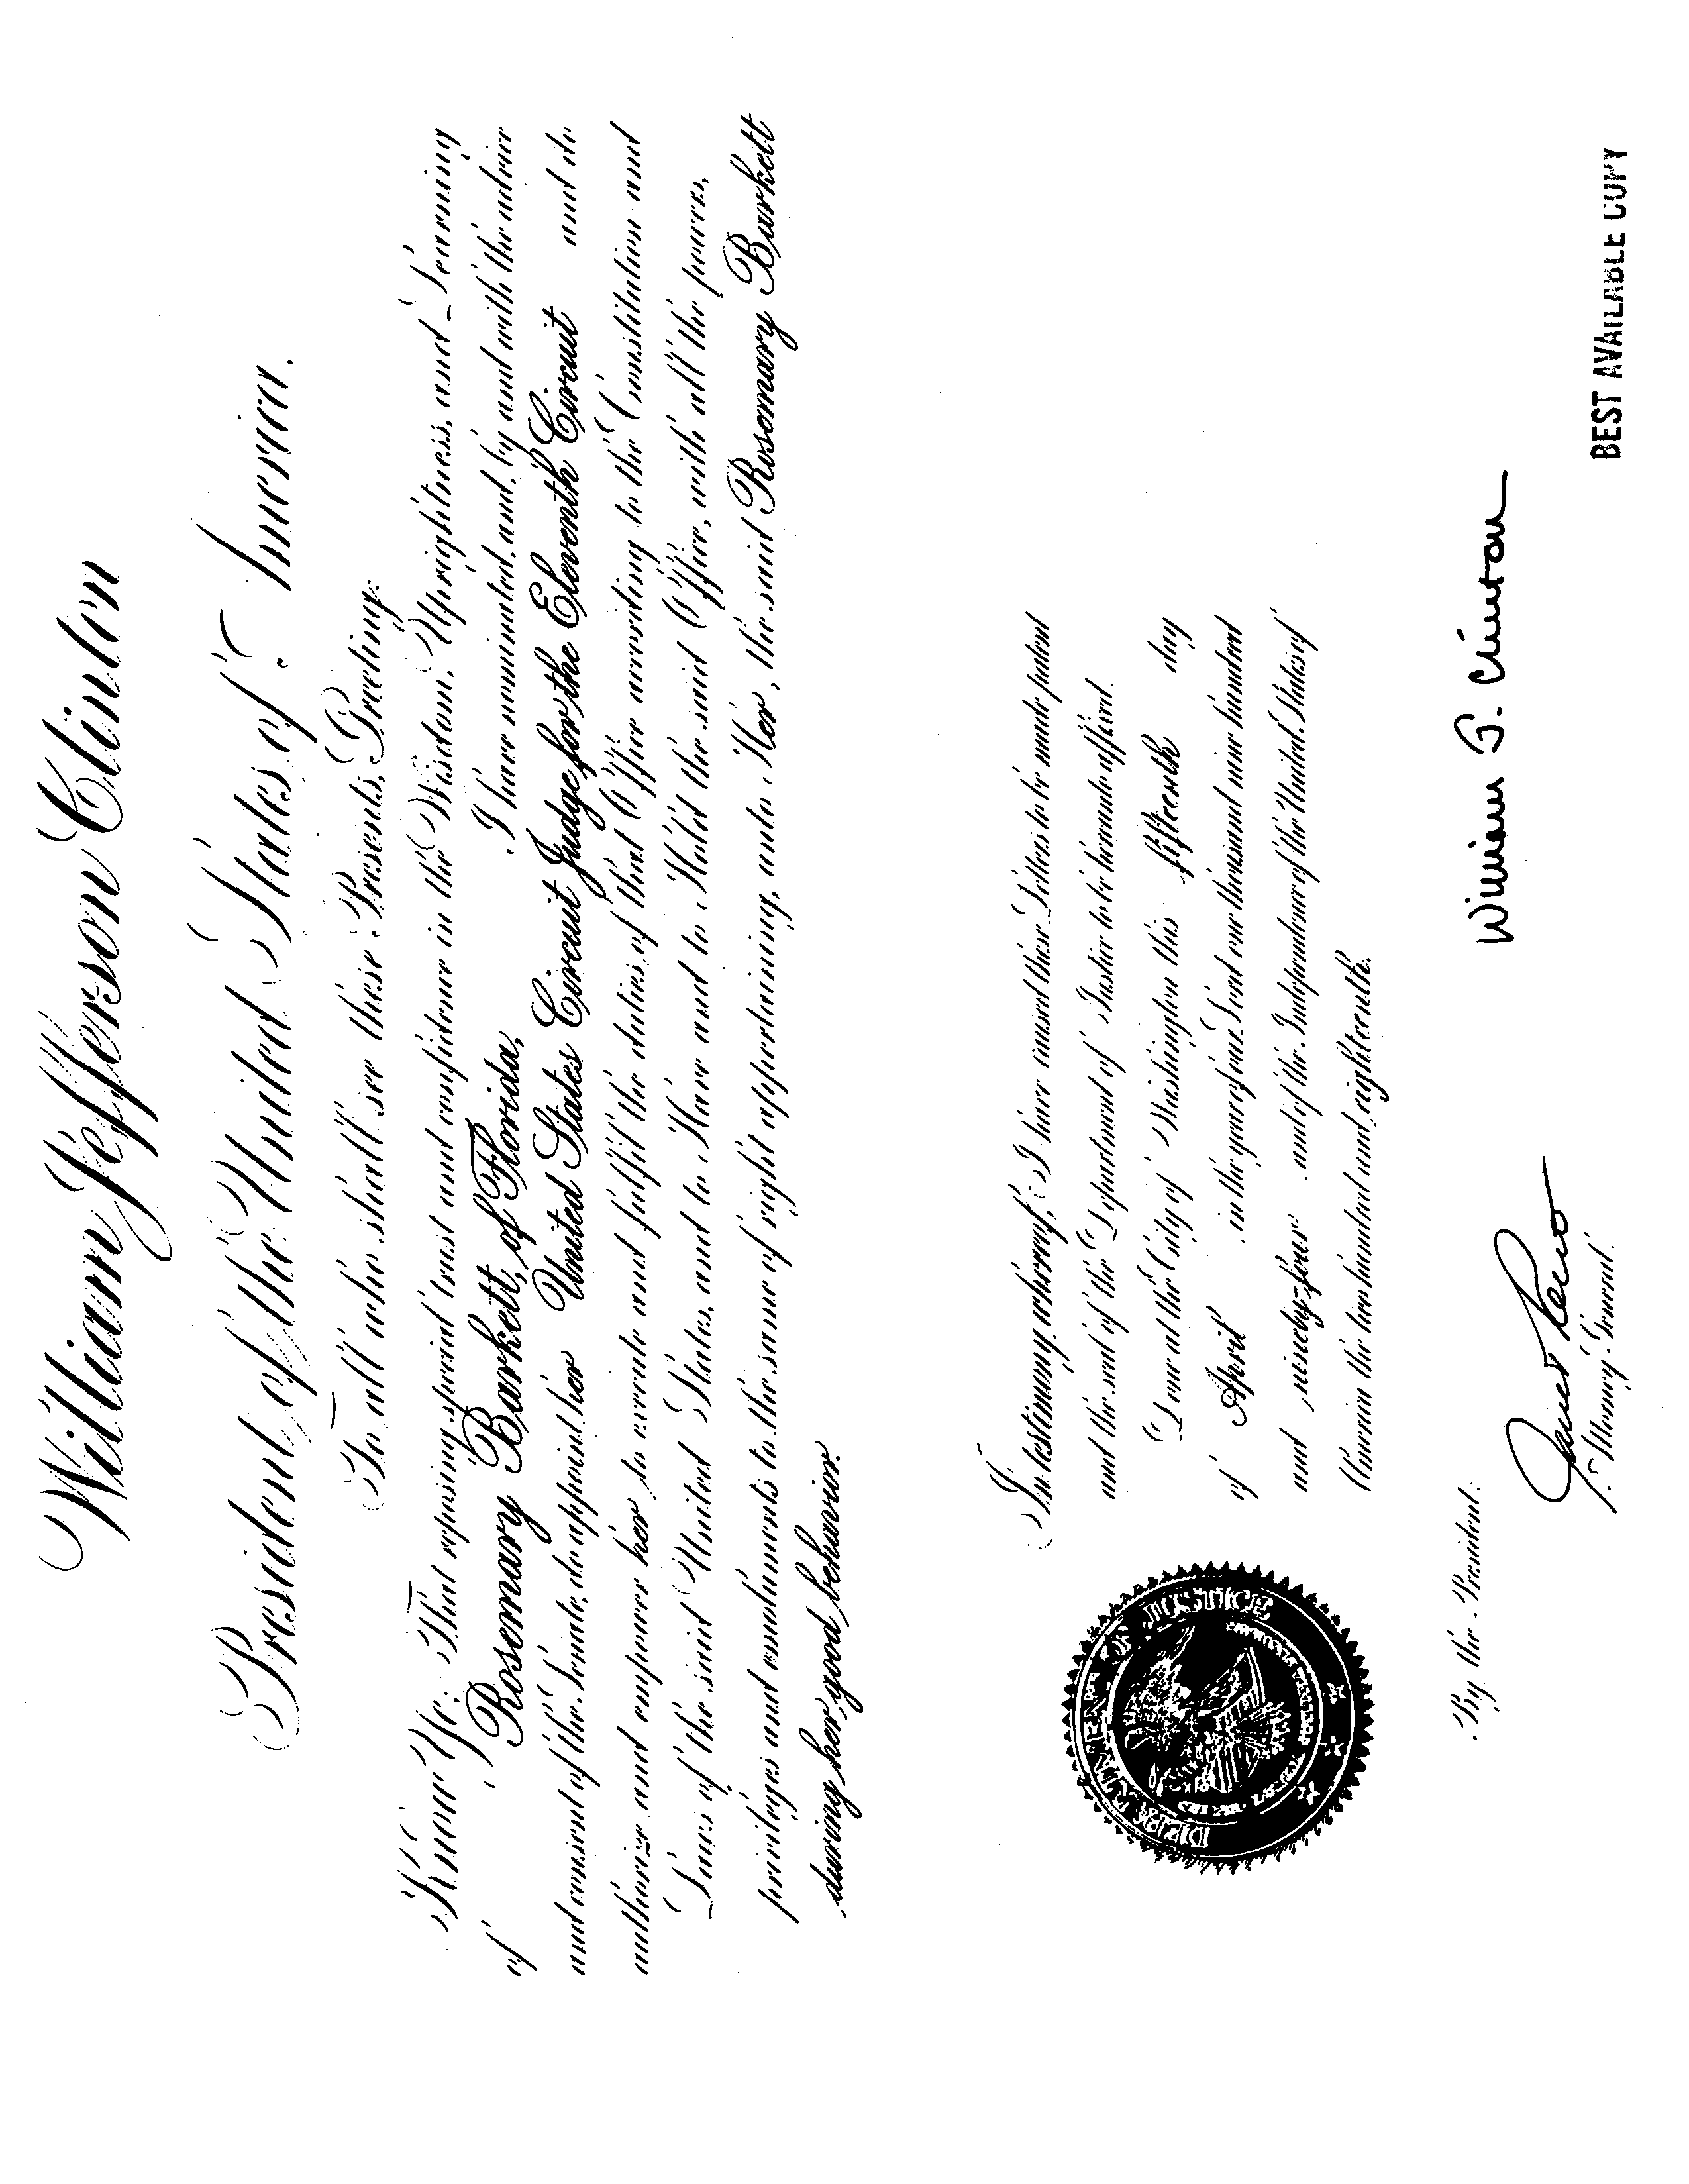 William Jefferson Clinton
President of the United States of America.
To all who shall see these Presents, Greeting:
Know Ye: That reposing special trust and confidence in the Wisdom, Uprightness, and Learning
of Rosemary Barkett, of Florida, I have nominated, and, by and with the advice
and consent of the Senate, do appoint her United States Circuit Judge for the Eleventh Circuit and do
authorize and empower her to execute and fulfil the duties of that Office according to the Constitution and
Laws of the said United States, and to Have and to Hold the said Office, with all the powers,
privileges and emoluments to the same of right appertaining, unto Her, the said Rosemary Barkett
during her good behavior.
In testimony whereof, I have caused these Letters to be made patent
and the seal of the Department of Justice to be hereunto affixed.
Done at the City of Washington this fifteenth day
of April in the year of our Lord one thousand nine hundred
and ninety-four and of the Independence of the United States of
America the two hundred and eighteenth.
DEPARTMENT OF JUSTICE
William J. Clinton
By the President:
Janet Reno
Attorney General.
BEST AVAILABLE COPY